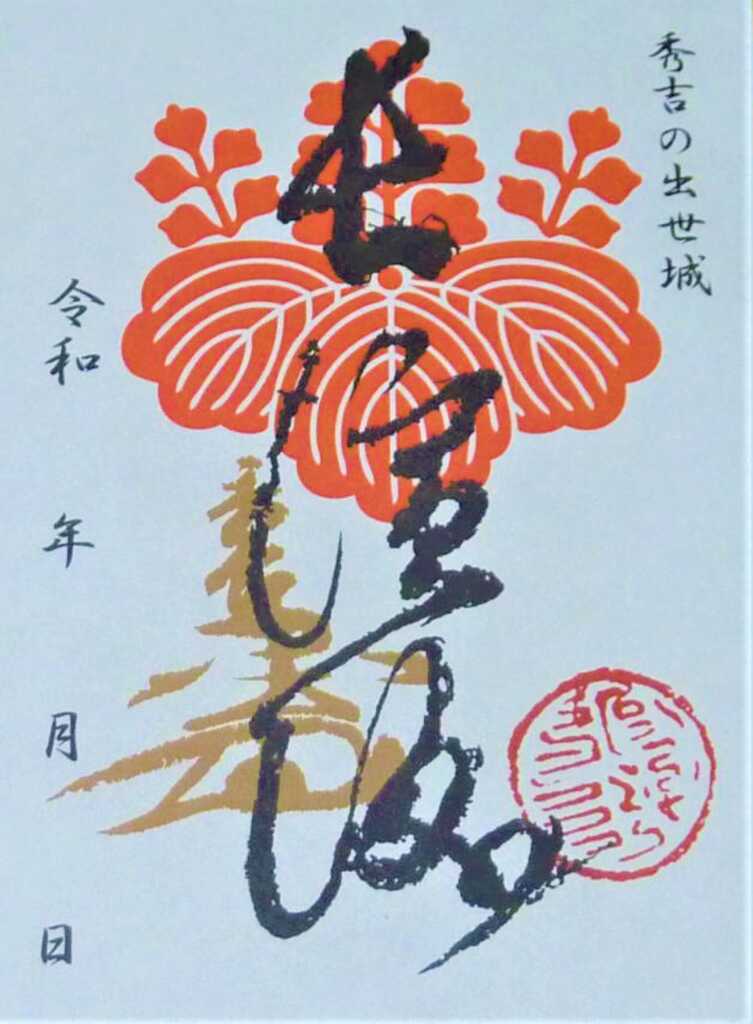 秀吉の出世城
長濱城
令和 年 月 日